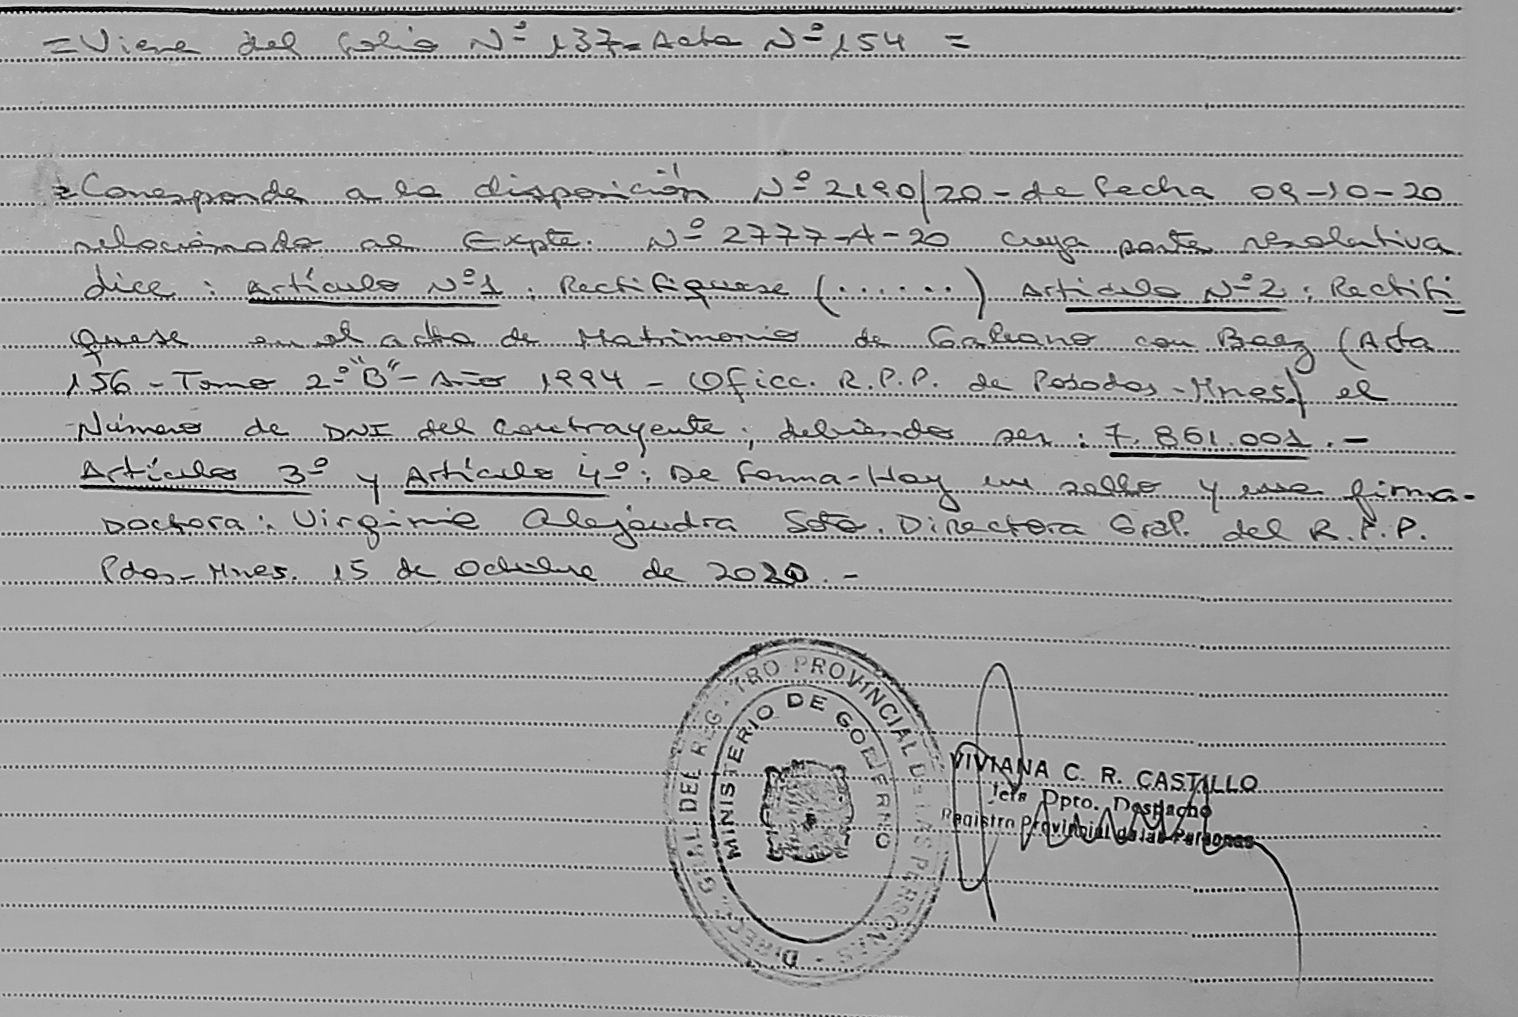 =Viene del folio Nº 137= Acta Nº 154 =
=Corresponde a la disposición Nº 2190/20 - de fecha 09-10-20
relacionado al Expte. Nº 2777-A-20 cuya parte resolutiva
dice: Artículo Nº 1: Rectifíquese (......) Artículo Nº 2: Rectifí
quese en el acta de Matrimonio de Galeano con Baez (Acta
156 - Tomo 2º "B" - Año 1994 - Ofic. R.P.P. de Posadas - Mnes) el
Número de DNI del contrayente, debiendo ser: 7.861.001.-
Artículo 3º y Artículo 4º: De forma - Hay un sello y una firma-
Doctora: Virginia Alejandra Soto. Directora Gral. del R.P.P.
Pdas - Mnes. 15 de Octubre de 2020.-
DIREC. GRAL. DEL REGISTRO PROVINCIAL DE LAS PERSONAS
MINISTERIO DE GOBIERNO
VIVIANA C. R. CASTILLO
Jefa Dpto. Despacho
Registro Provincial de las Personas